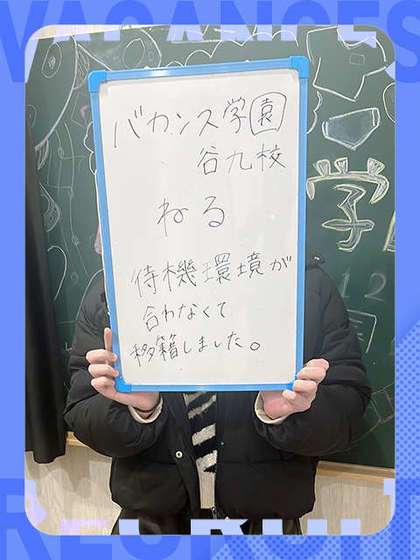 VACANCES
バカンス学園
谷九校
ねる
待機環境が
合わなくて
移籍しました。
学
12
RECRUIT